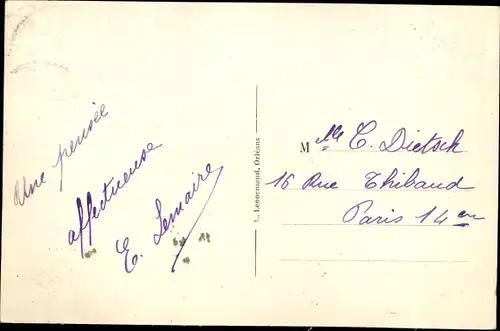 Une pensée
affectueuse
E. Lemaire
L. Lenormand, Orléans
Mlle C. Dietsch
16 Rue Thibaud
Paris 14em